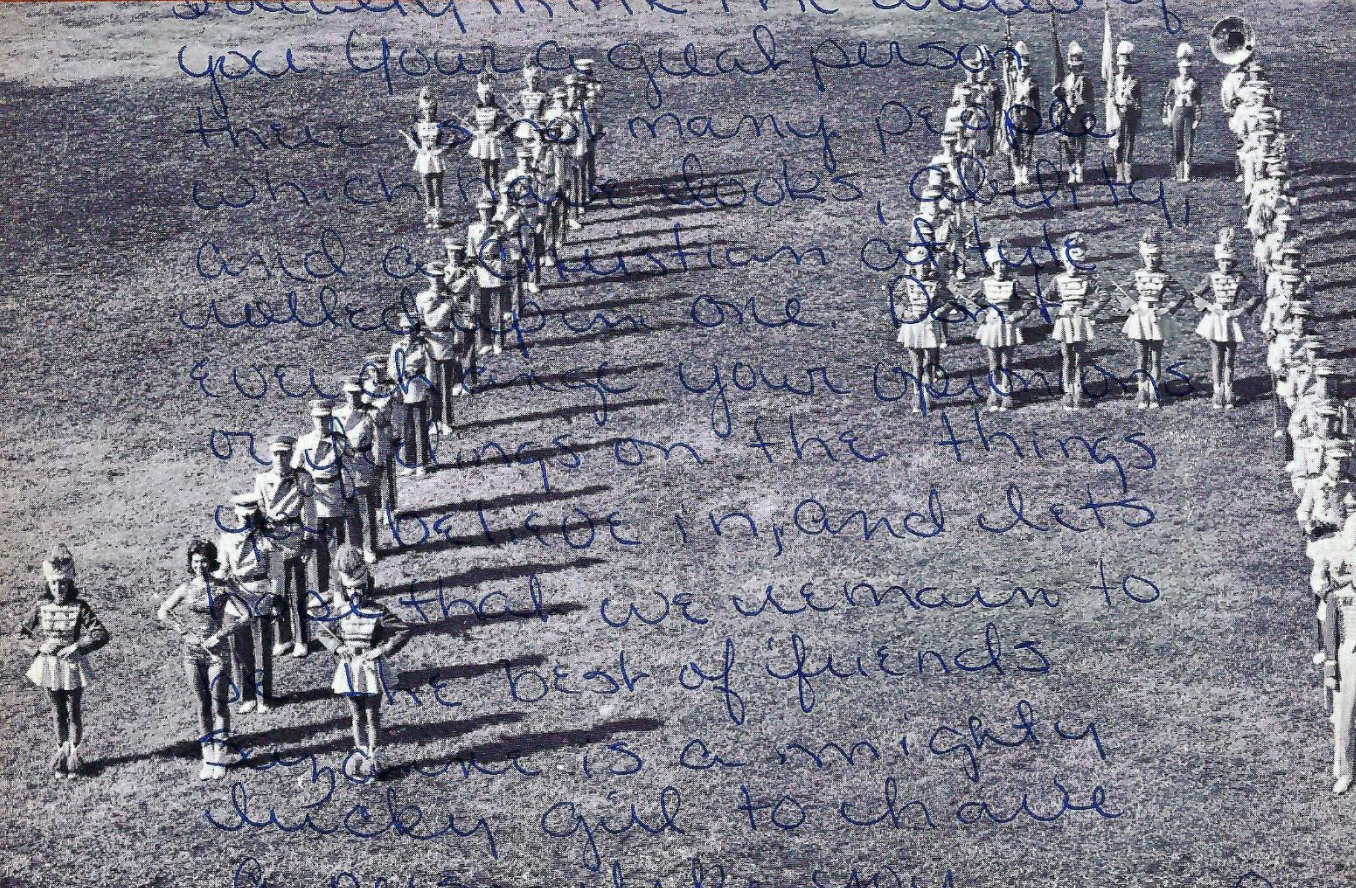 think the world of
you Your a great person
their is not many people
which have looks, ability,
and a Christian atityte
rolled up in one. Don't
ever change your opinions
or feelings on the things
you believe in, and lets
hope that we remain to
be the best of friends
Suzanne is a mighty
lucky girl to have
a person like you